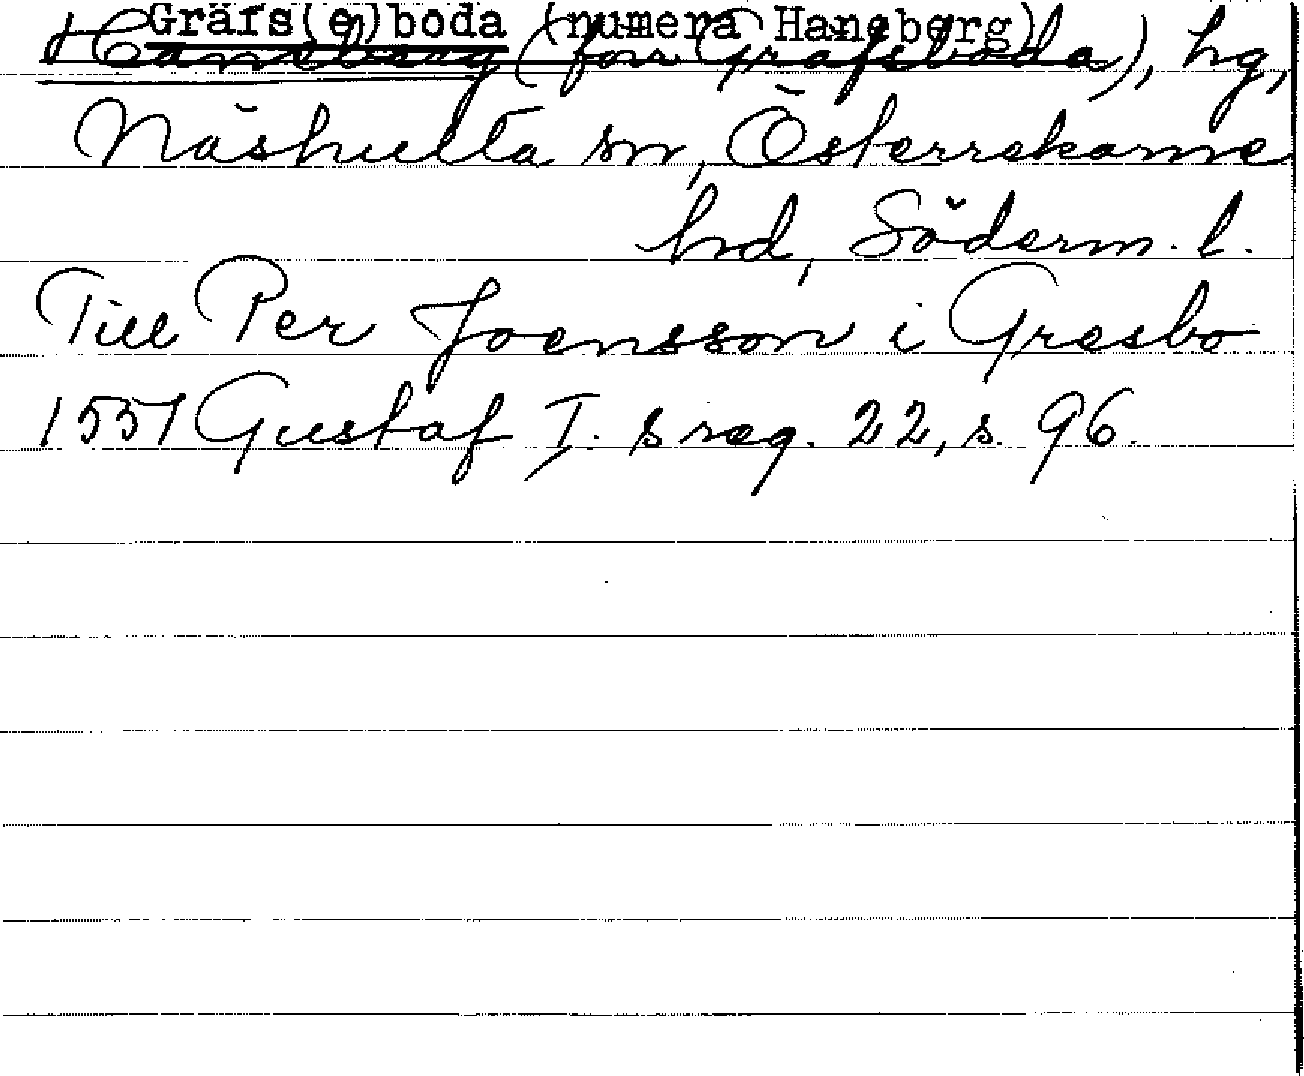 Gräfs(e)boda (numera Haneberg)
Haneberg (förr Gräfseboda), hg,
Näshulta sn, Österrekarne
hd, Söderm. l.
Till Per Joensson i Gresbo
1551 Gustaf I. s reg. 22, s. 96.